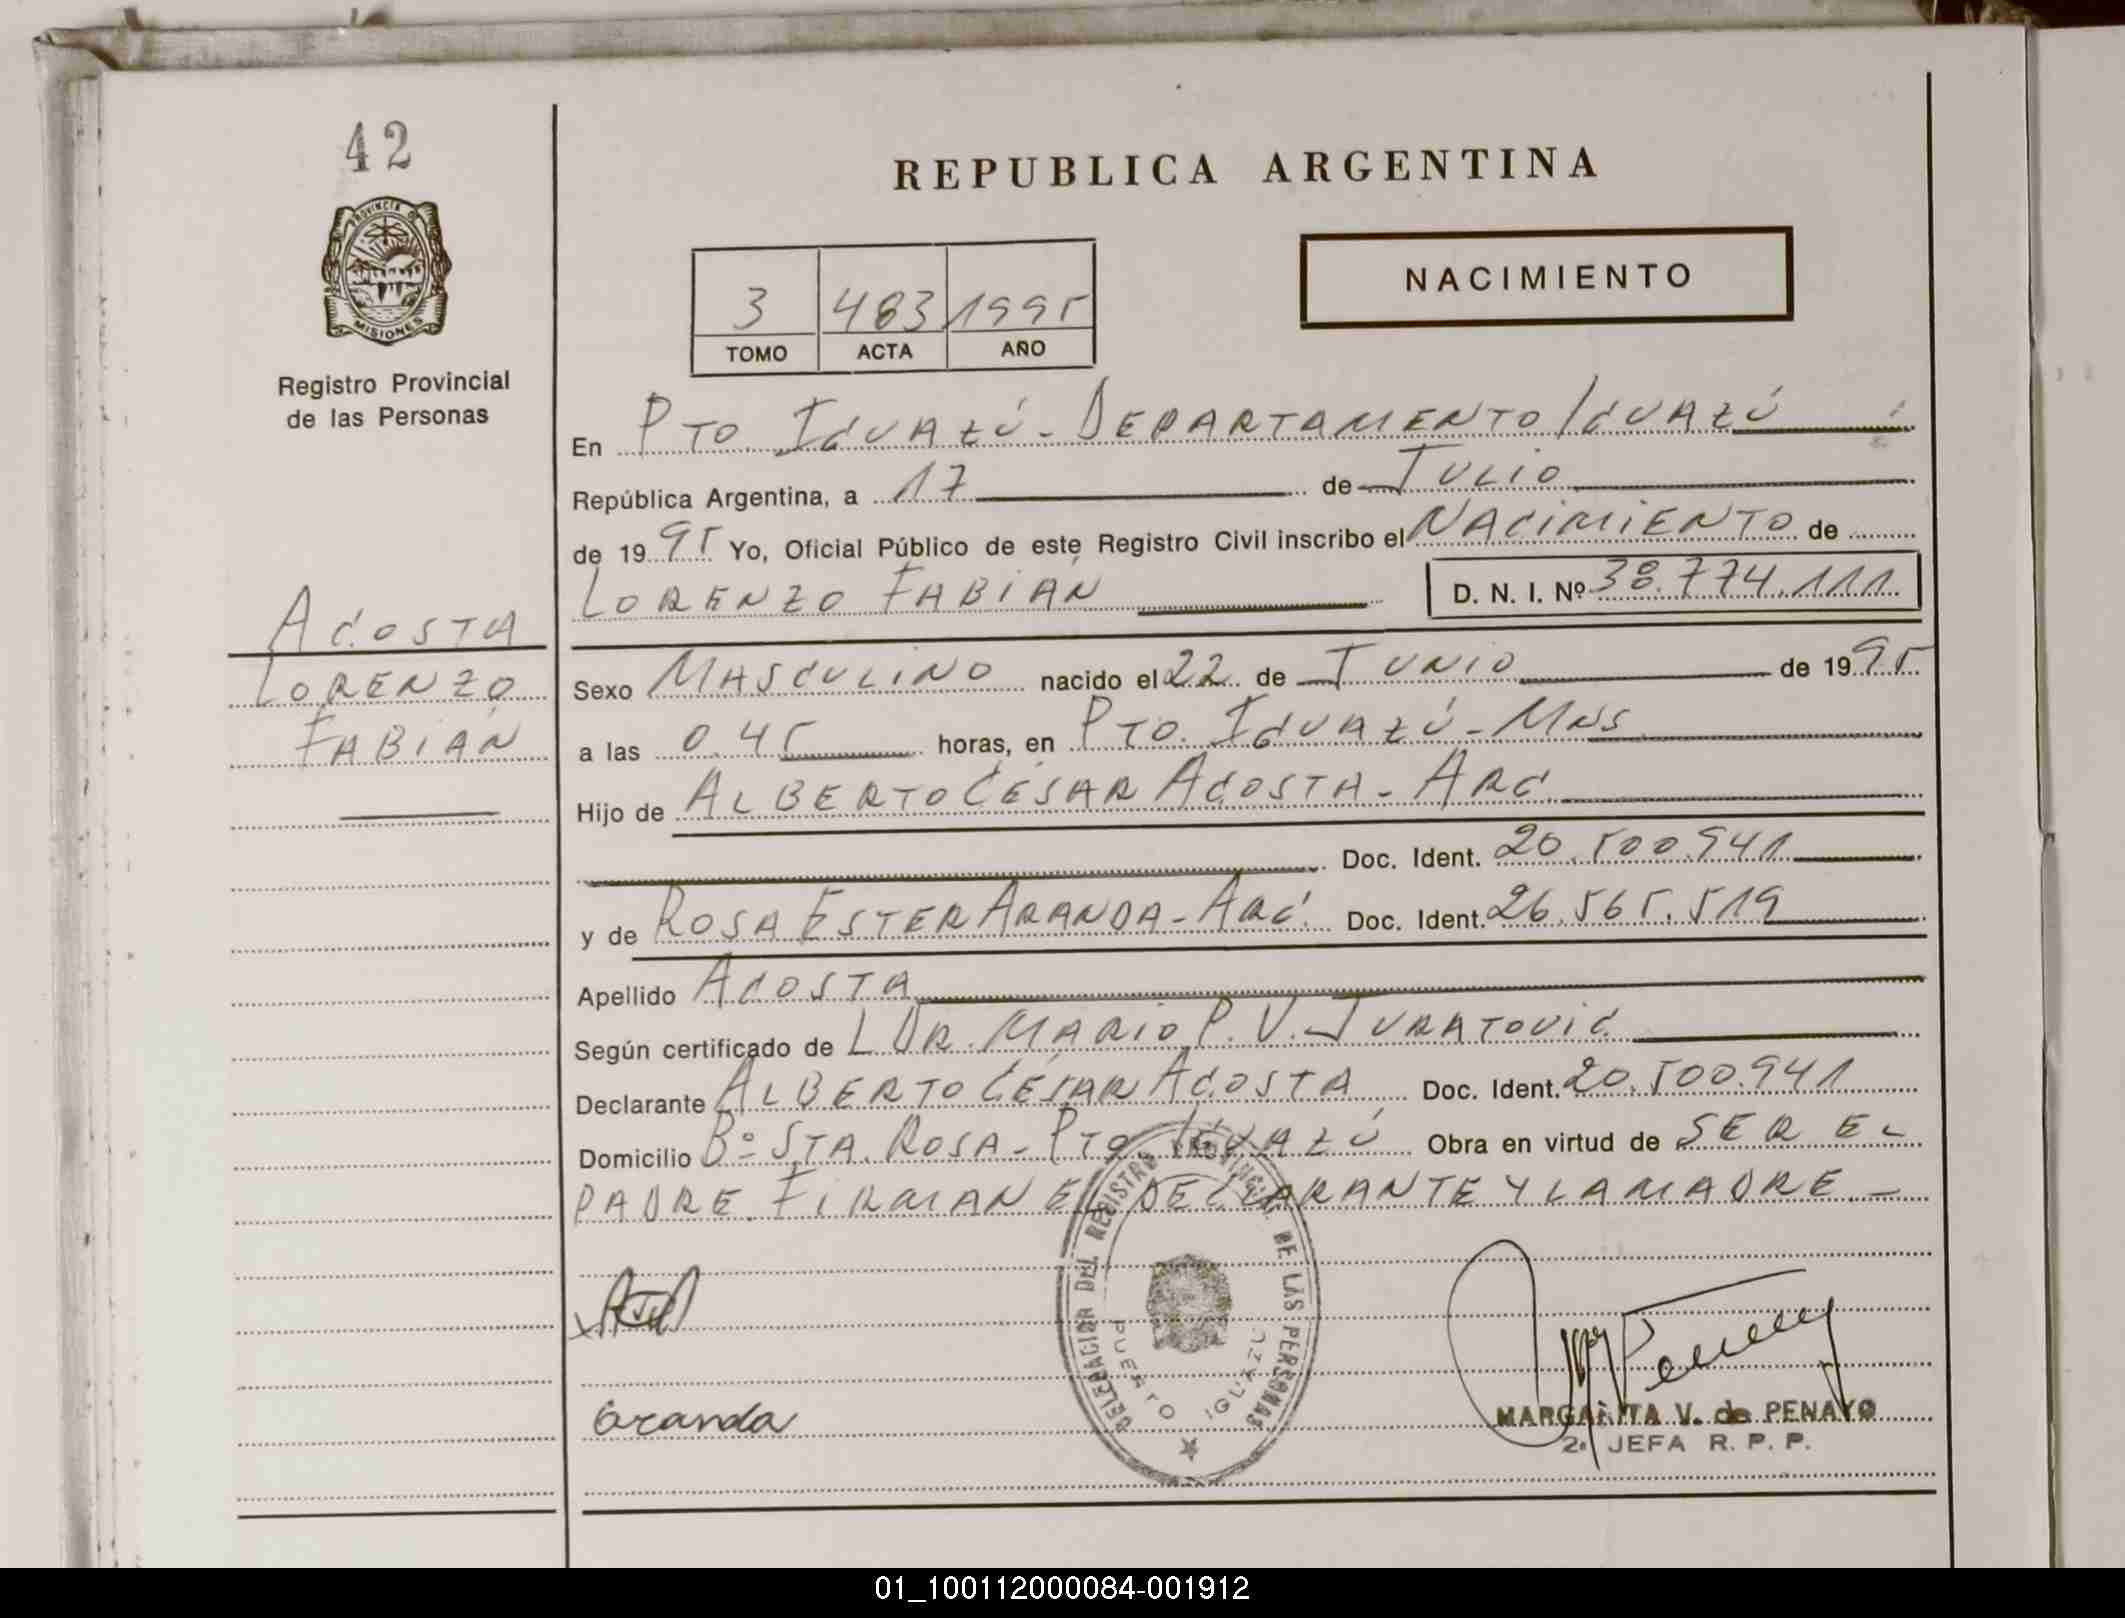 42
PROVINCIA DE
MISIONES
Registro Provincial
de las Personas
ACOSTA
LORENZO
FABIÁN
REPUBLICA ARGENTINA
NACIMIENTO
3 483 1995
TOMO ACTA AÑO
En PTO. IGUAZÚ - DEPARTAMENTO IGUAZÚ
República Argentina, a 17 de JULIO
de 1995 Yo, Oficial Público de este Registro Civil inscribo el NACIMIENTO de
LORENZO FABIÁN D. N. I. Nº 38.774.111
Sexo MASCULINO nacido el 22 de JUNIO de 1995
a las 0.45 horas, en PTO. IGUAZÚ - MNS
Hijo de ALBERTO CÉSAR ACOSTA - ARG.
Doc. Ident. 20.500.941
y de ROSA ESTER ARANDA - ARG. Doc. Ident. 26.565.519
Apellido ACOSTA
Según certificado de DR. MARIO P. V. JURATOVIC
Declarante ALBERTO CÉSAR ACOSTA Doc. Ident. 20.500.941
Domicilio Bº STA. ROSA - PTO IGUAZÚ Obra en virtud de SER EL
PADRE. FIRMAN EL DECLARANTE Y LA MADRE -
DELEGACION DEL REGISTRO PROVINCIAL DE LAS PERSONAS
PUERTO IGUAZU
Aranda
MARGARITA V. de PENAYO
2ª JEFA R. P. P.
01_100112000084-001912